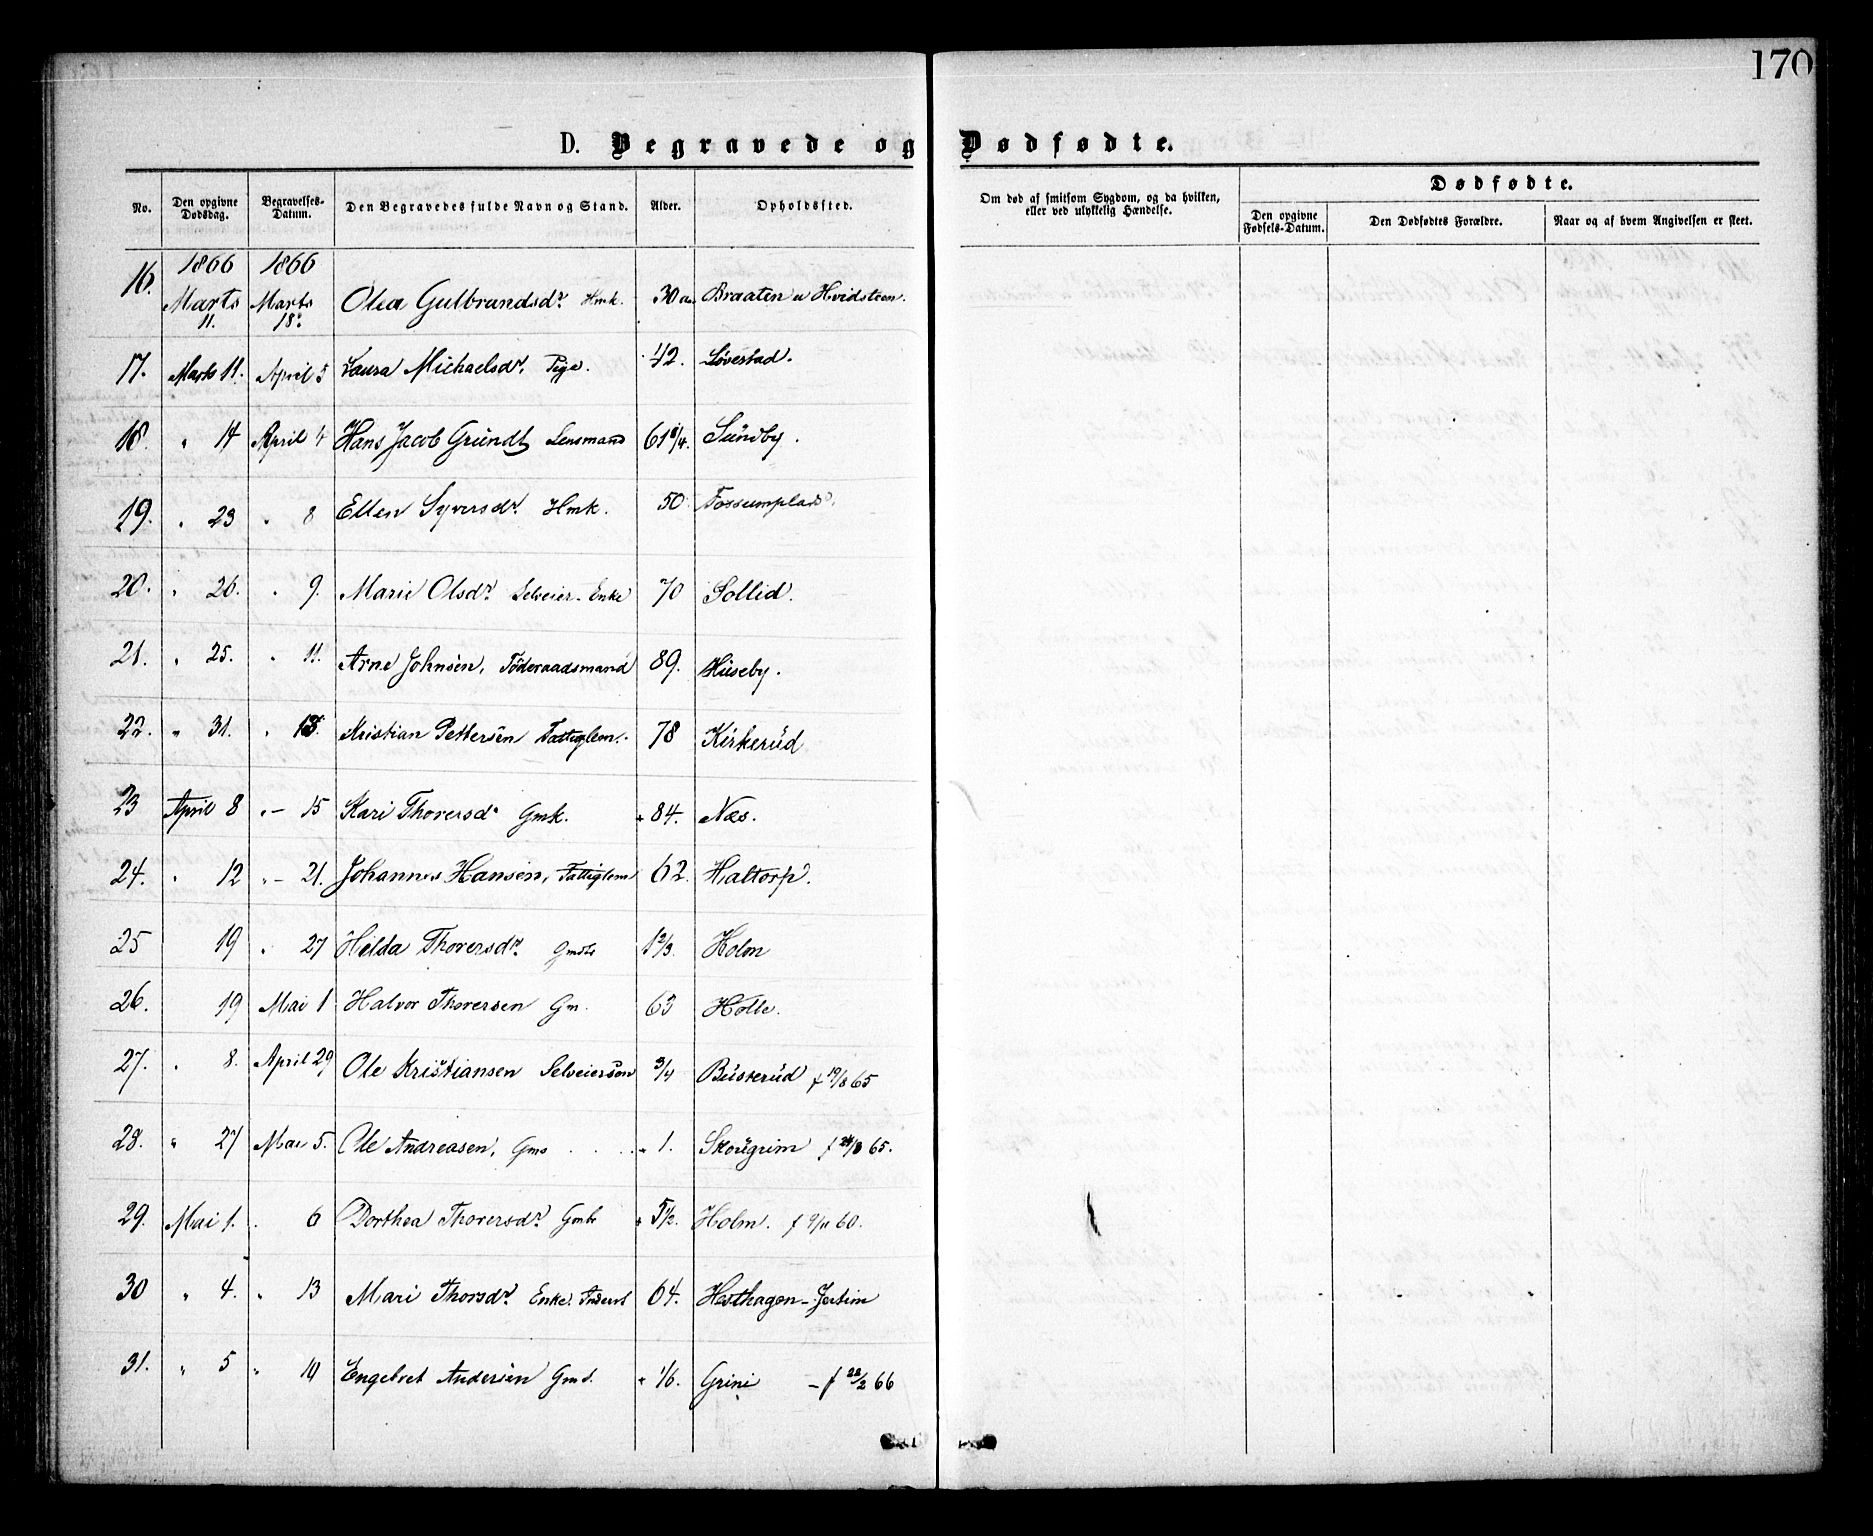 170
D. Begravede og Dødfødte.
No. Den opgivne Dødsdag. Begravelses-Datum. Den Begravedes fulde Navn og Stand. Alder. Opholdssted. Om død af smitsom Sygdom, og da hvilken, eller ved ulykkelig Hændelse. Dødfødte. Den opgivne Fødsels-Datum. Den Dødfødtes Forældre. Naar og af hvem Angivelsen er skeet.
1866 1866
16. Marts 11. Marts 18. Olea Gulbrandsdr Hmk. 30 Braaten u Hvidsteen.
17. Marts 11. April 5 Laura Michaelsdr. Pige. 42. Løvestad.
18. " 14 April 4 Hans Jacob Grundt Lensmand 61 Sundby.
19. " 23 " 8 Ellen Syversdr. Hmk. 50 Fossumplads.
20. " 26. " 9. Marie Olsdr. Selveier-Enke 70 Sollid.
21. " 25. " 11. Arne Johnsen, Føderaadsmand 89. Huseby.
22. " 31. " 13. Kristian Pettersen Fattiglem. 78 Kirkerud
23 April 8 " – 15 Kari Thoversd. Gmk. 84. Næs.
24. " 12 " – 21. Johannes Hansen, Fattiglem 62. Haltorp.
25 19 " 27 Hilda Thoversdr. 1 2/3. Holm
26. 19 Mai 1 Halvor Thoversen Gm. 63 Holle.
27. " 8. April 29 Ole Kristiansen Selveiersøn 3/4 Busterud f 19/8 65
28. " 27 Mai 5. Ole Andreasen, Gms 1. Skougrim f 24/8 65.
29. Mai 1. " 6 Dorthea Thoversdr. 5 1/2. Holm. f 9/11 60.
30 " 4. " 13 Mari Thorsdr. Enke. 64. Hesthagen – Jertim
31. " 5 " 19 Engebret Andersen Gms. 1/6. Grini – f 22/2 66